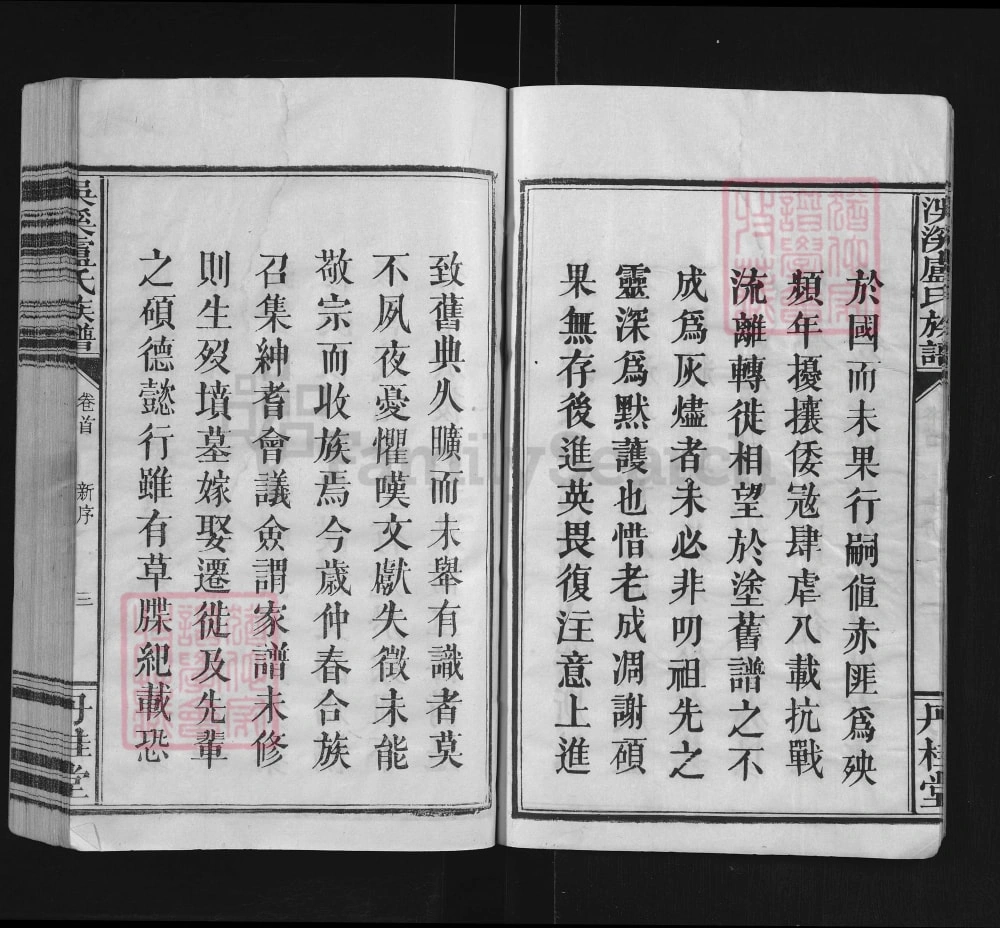 浿溪盧氏族譜
丹桂堂
於國而未果行嗣值赤匪為殃
頻年擾攘倭寇肆虐八載抗戰
流離轉徙相望於塗舊譜之不
成爲灰燼者未必非叨祖先之
靈深爲默護也惜老成凋謝碩
果無存後進英畏復注意上進
致舊典久曠而未舉有識者莫
不夙夜憂懼嘆文獻失徵未能
敬宗而收族焉今歲仲春合族
召集紳耆會議僉謂家譜未修
則生歿墳墓嫁娶遷徙及先輩
之碩德懿行雖有草牒紀載恐
盧氏族譜
卷首
新序
三
丹桂堂
FamilySearch